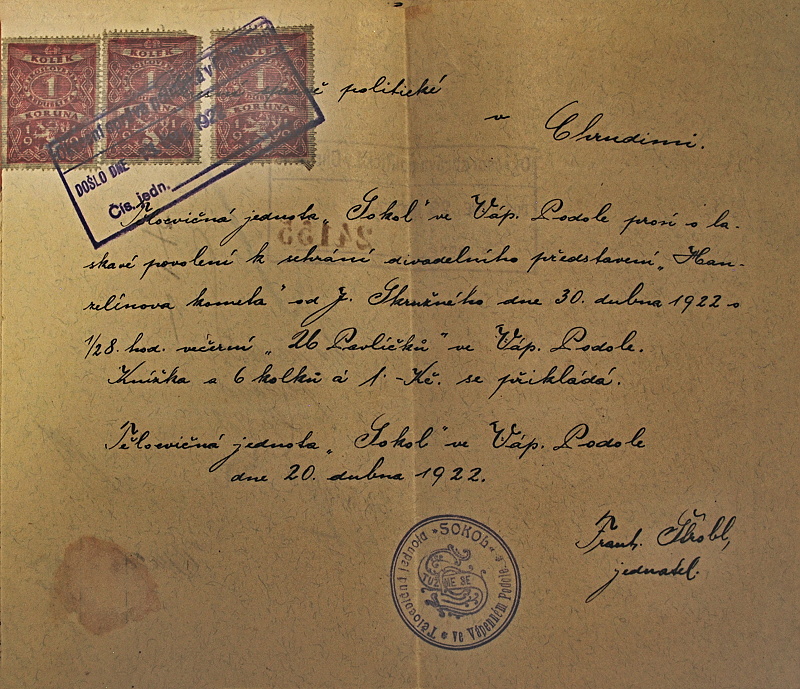 KOLEK
KOLEK
KOLEK
1
1
1
KORUNA
KORUNA
KORUNA
DOŠLO DNE
Čís. jedn.
politické
v Chrudimi.
Tělocvičná jednota „Sokol" ve Váp. Podole prosí o la-
skavé povolení k sehrání divadelního představení „Han-
zelínova kometa" od J. Skružného dne 30. dubna 1922 o
1/28. hod. večerní „U Pavlíčků" ve Váp. Podole.
Knížka a 6 kolků á 1.-Kč. se přikládá.
Tělocvičná jednota „Sokol" ve Váp. Podole
dne 20. dubna 1922.
Frant. Štrobl,
jednatel.
Tělocvičná jednota "SOKOL" ve Vápenném Podole.
TUŽME SE
24155